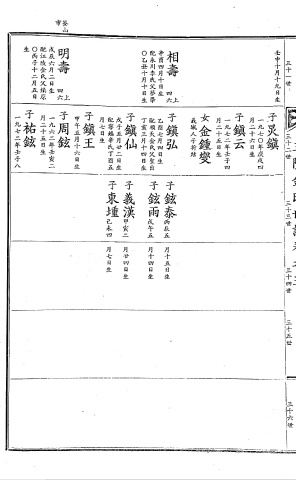 三十一世
三十二世
三十三世
三十四世
三十五世
三十六世
壬申十月十九日生
相壽
四六上
辛酉四月十日生
配永川李氏父
○乙丑十月十日生
明壽
四六上
戊辰六月二日生
配江陵金氏父鎭
○丙子十二月五日生
釜山市
子炅鎭
一九七○年庚戌四
月二十六日生
子鎭云
一九七二年壬子四
月二十五日生
女金鍾燮
義城人子
子鎭弘
乙酉七月四日生
配順天金氏父聖
丁亥三月十四日生
子鎭仙
戊子五月廿二日生
月七日生
子鎭王
甲午五月十六日生
子周鉉
一九六二年壬寅二
月二十五日生
子祐鉉
一九七二年壬子八
子鉉泰
丙辰五月十五日生
子鉉雨
戊午五月十四日生
子義漢
甲寅二月廿四日生
子東壎
己未四月七日生